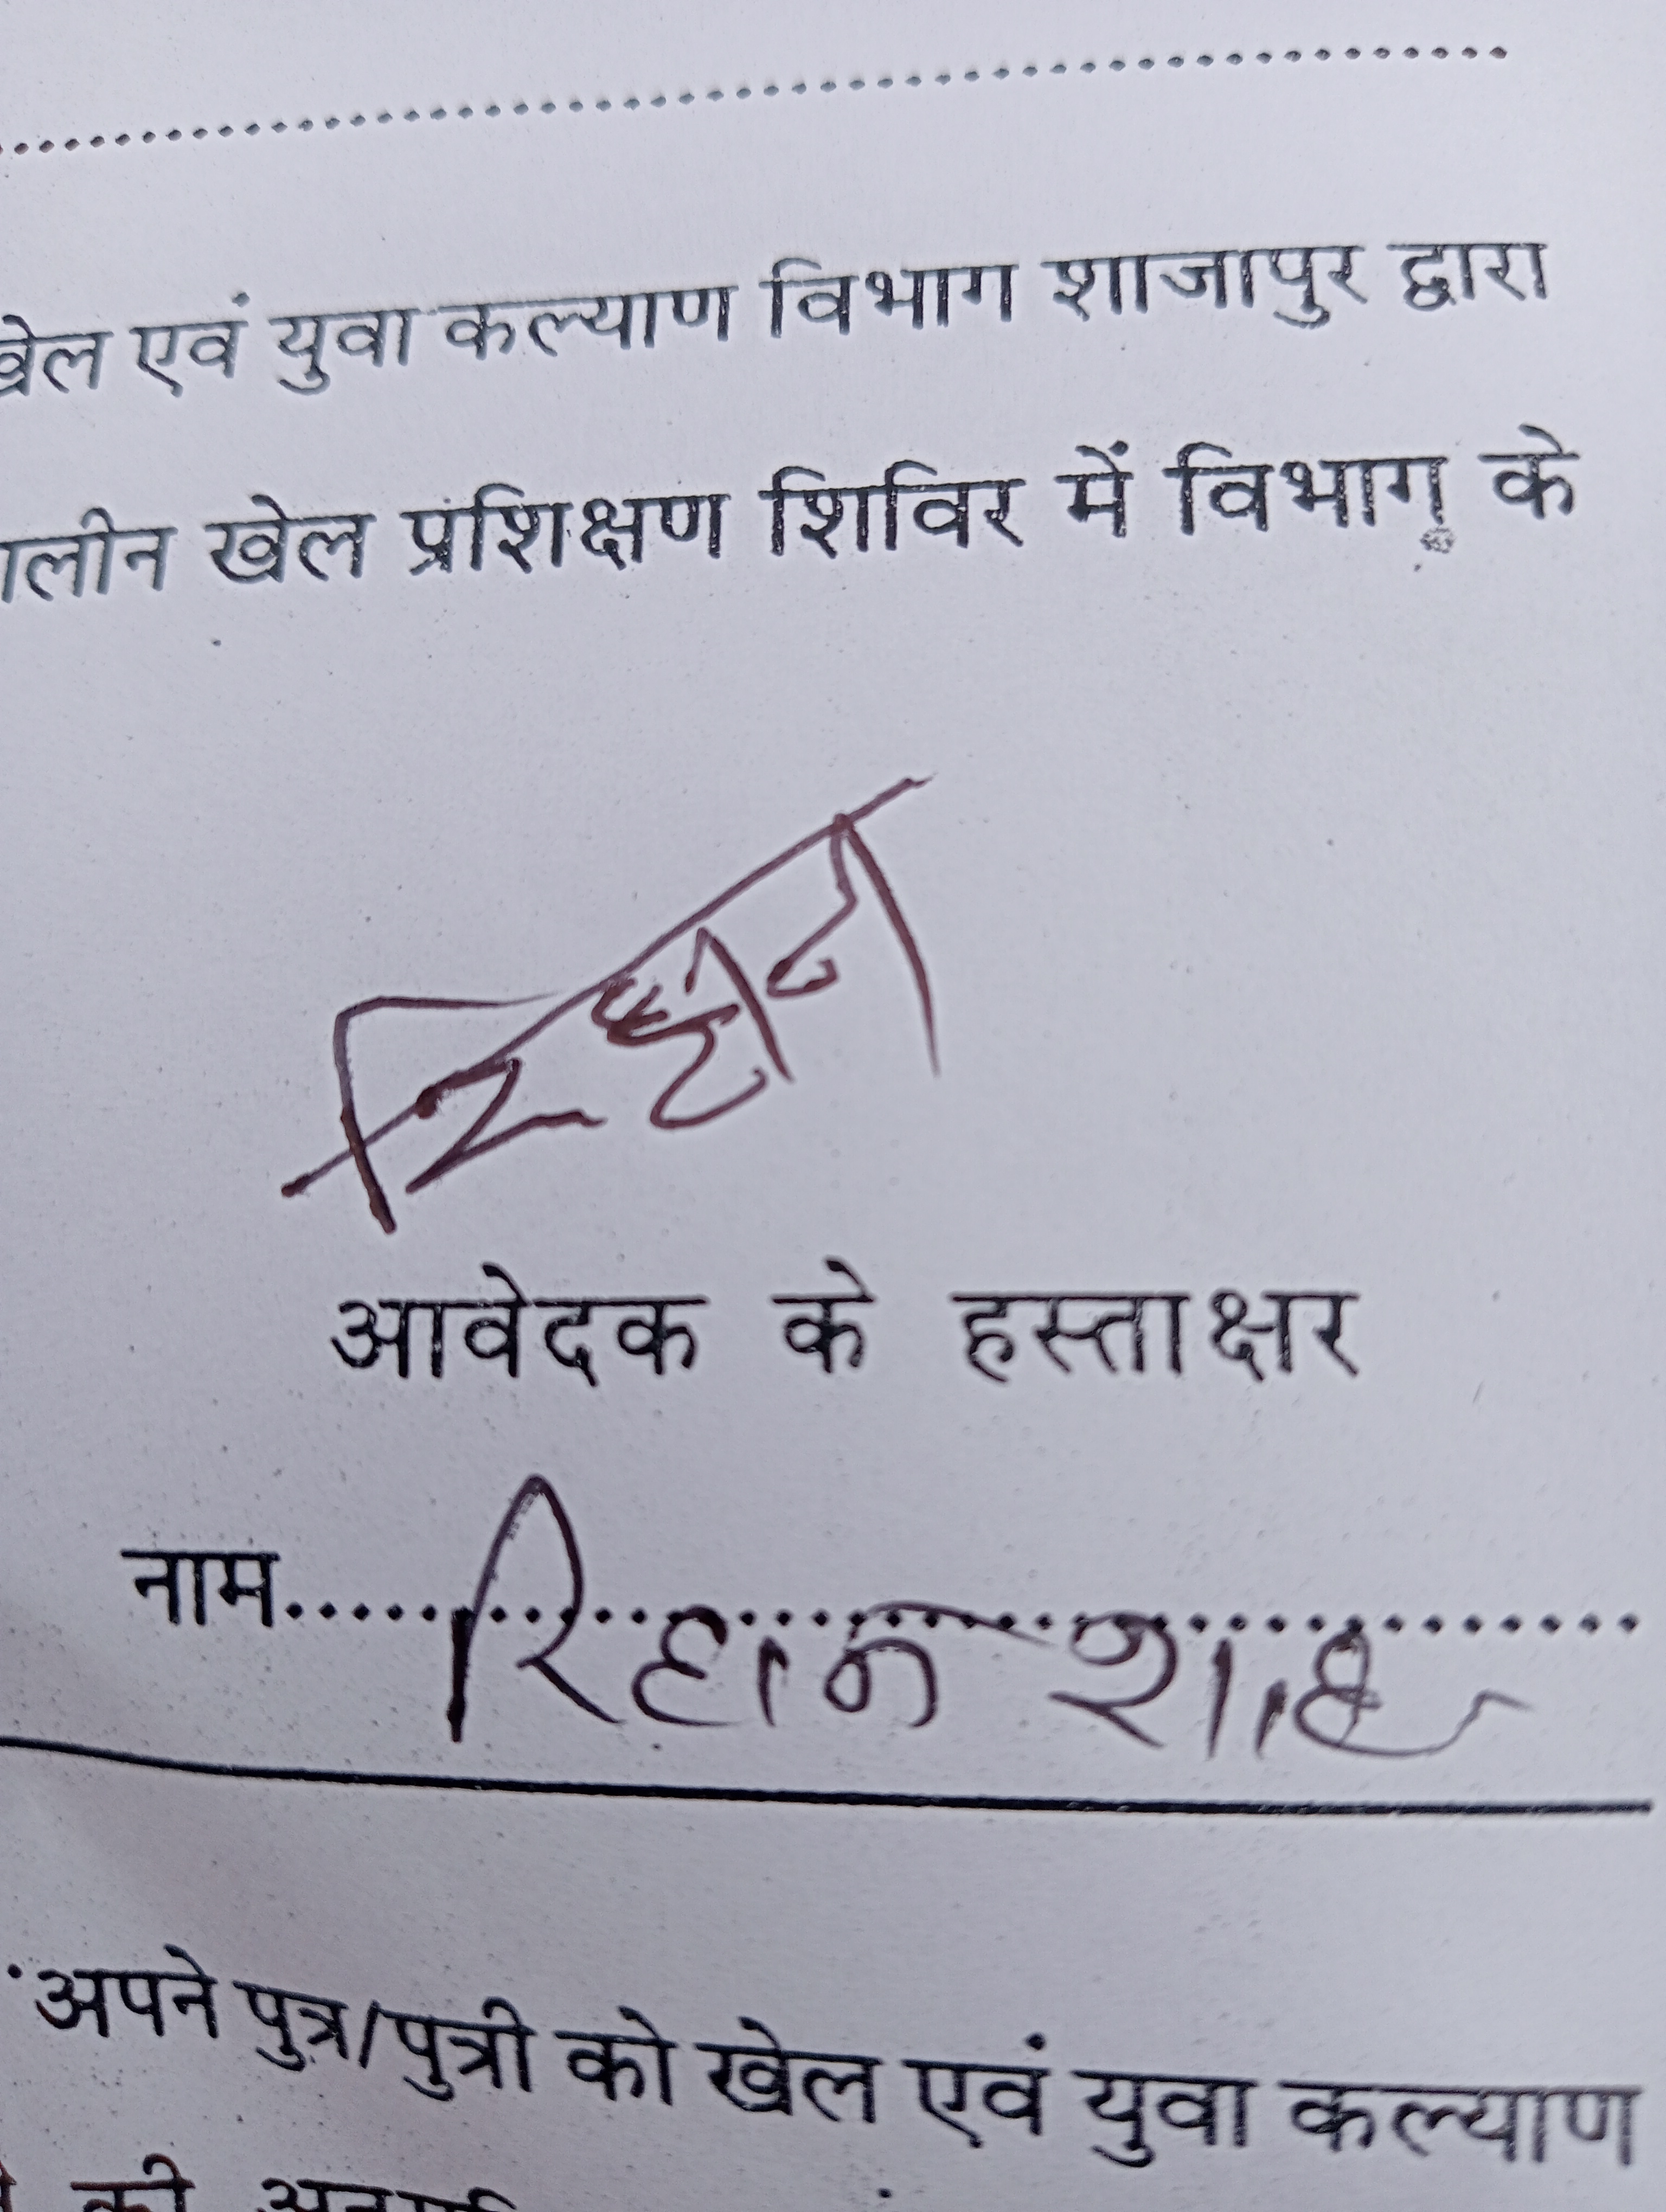 खेल एवं युवा कल्याण विभाग शाजापुर द्वारा
ालीन खेल प्रशिक्षण शिविर में विभाग के
रिहान
आवेदक के हस्ताक्षर
नाम..... रिहान शाह
अपने पुत्र/पुत्री को खेल एवं युवा कल्याण
की